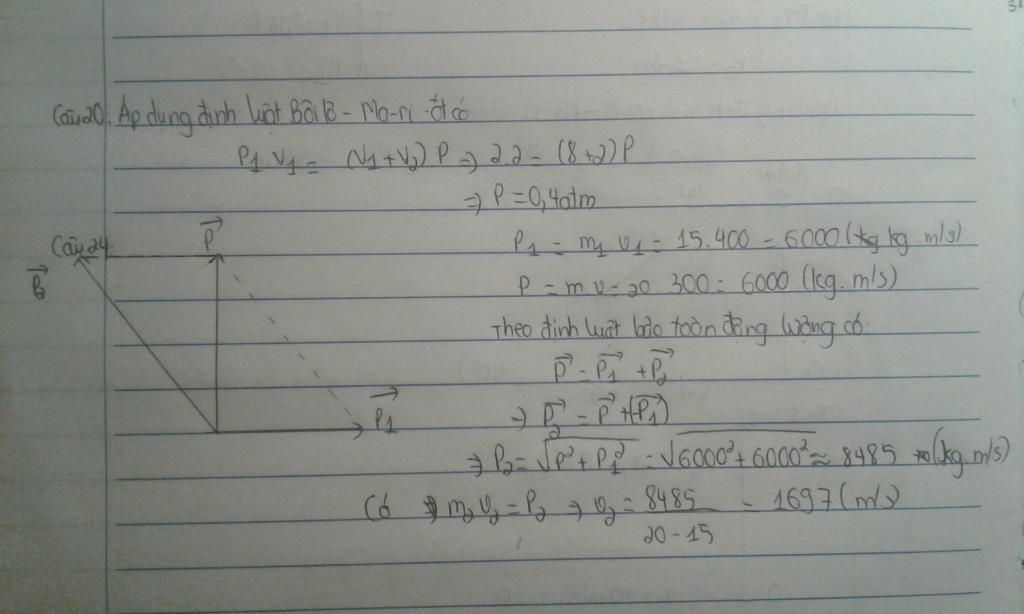 Câu 20. Áp dụng định luật Bôilơ - Ma-ri-ốt có
P₁V₁ = (V₁+V₂)P => 2.2 = (8+2)P
=> P = 0,4atm
Câu 24.
P₁ = m₁v₁ = 15.400 = 6000 (kg m/s)
P = m.v = 20.300 = 6000 (kg.m/s)
Theo định luật bảo toàn động lượng có
P⃗ = P⃗₁ + P⃗₂
=> P⃗₂ = P⃗ + (-P⃗₁)
=> P₂ = √(P² + P₁²) = √(6000² + 6000²) ≈ 8485 (kg.m/s)
Có m₂v₂ = P₂ => v₂ = 8485/(20-15) = 1697 (m/s)
P⃗
P⃗₂
P⃗₁